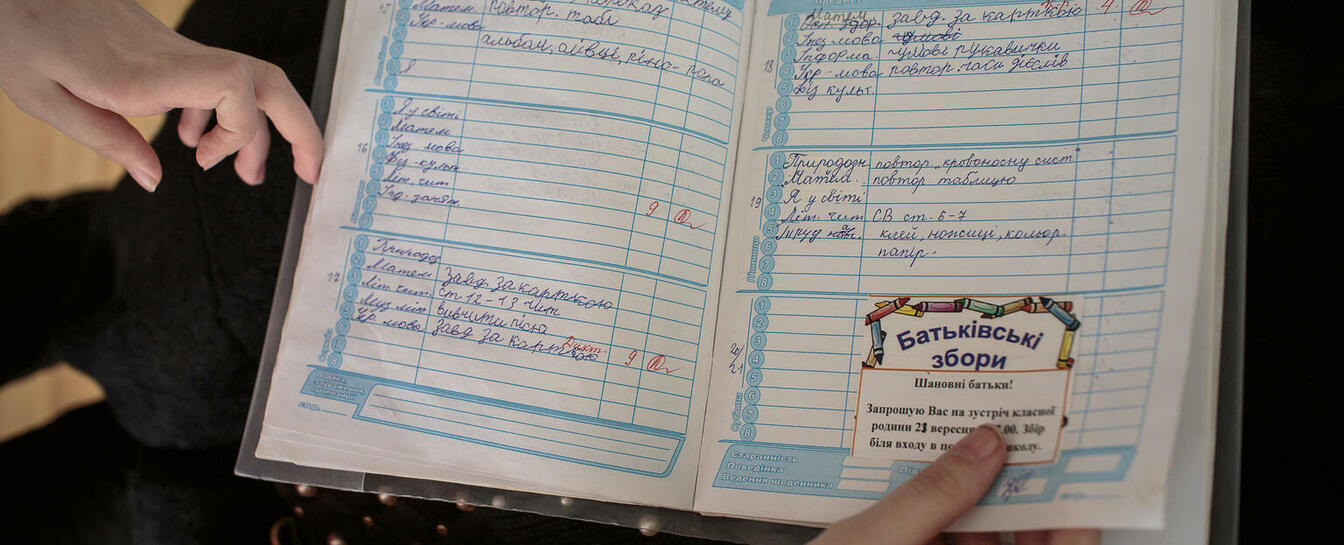 15
Матем повтор. табл
Укр. мова
альбом, олівці, гіпо-попа
16
Вівторок
Я у світі
Матем
Інз мова
Фіз-культ
Літ. чит
Інд. занят.
9
17
Середа
Природ
Матем завд. за карткою
Літ. чит. ст 12-13 чит
Муз мис вивчити пісню
Укр мова завд за карткою
Дикт.
9
Матем
завд. за карткою
4
18
Четвер
Інз мова
Інформа умови рукавички
Укр-мова повтор. часи дієслів
Фіз культ.
19
П'ятниця
Природозн повтор. кровоносну сист
Матем. повтор таблицю
Я у світі
Літ. чит СВ ст. 6-7
Труд клей, ножиці, кольор.
папір.
20/21
Субота
Батьківські
збори
Шановні батьки!
Запрошую Вас на зустріч класної
родини 23 вересня .00. Збір
біля входу в школу.
Старанність
Поведінка
Ведення щоденника